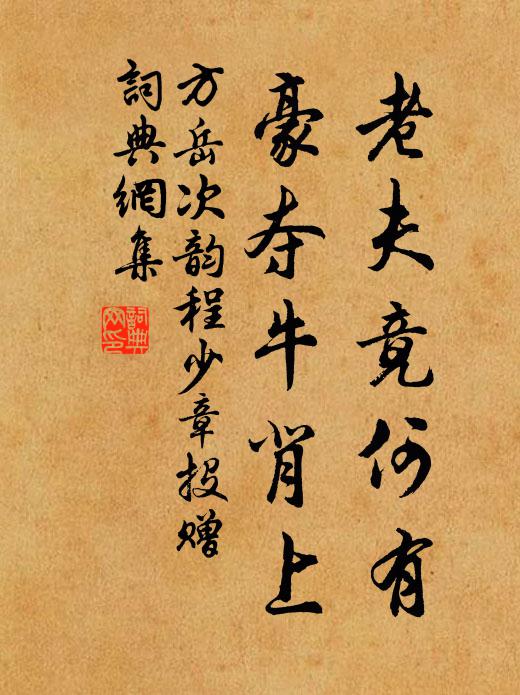 老夫竟何有
豪夺牛背上
方岳次韵程少章投赠
詞典網集
詞典网印